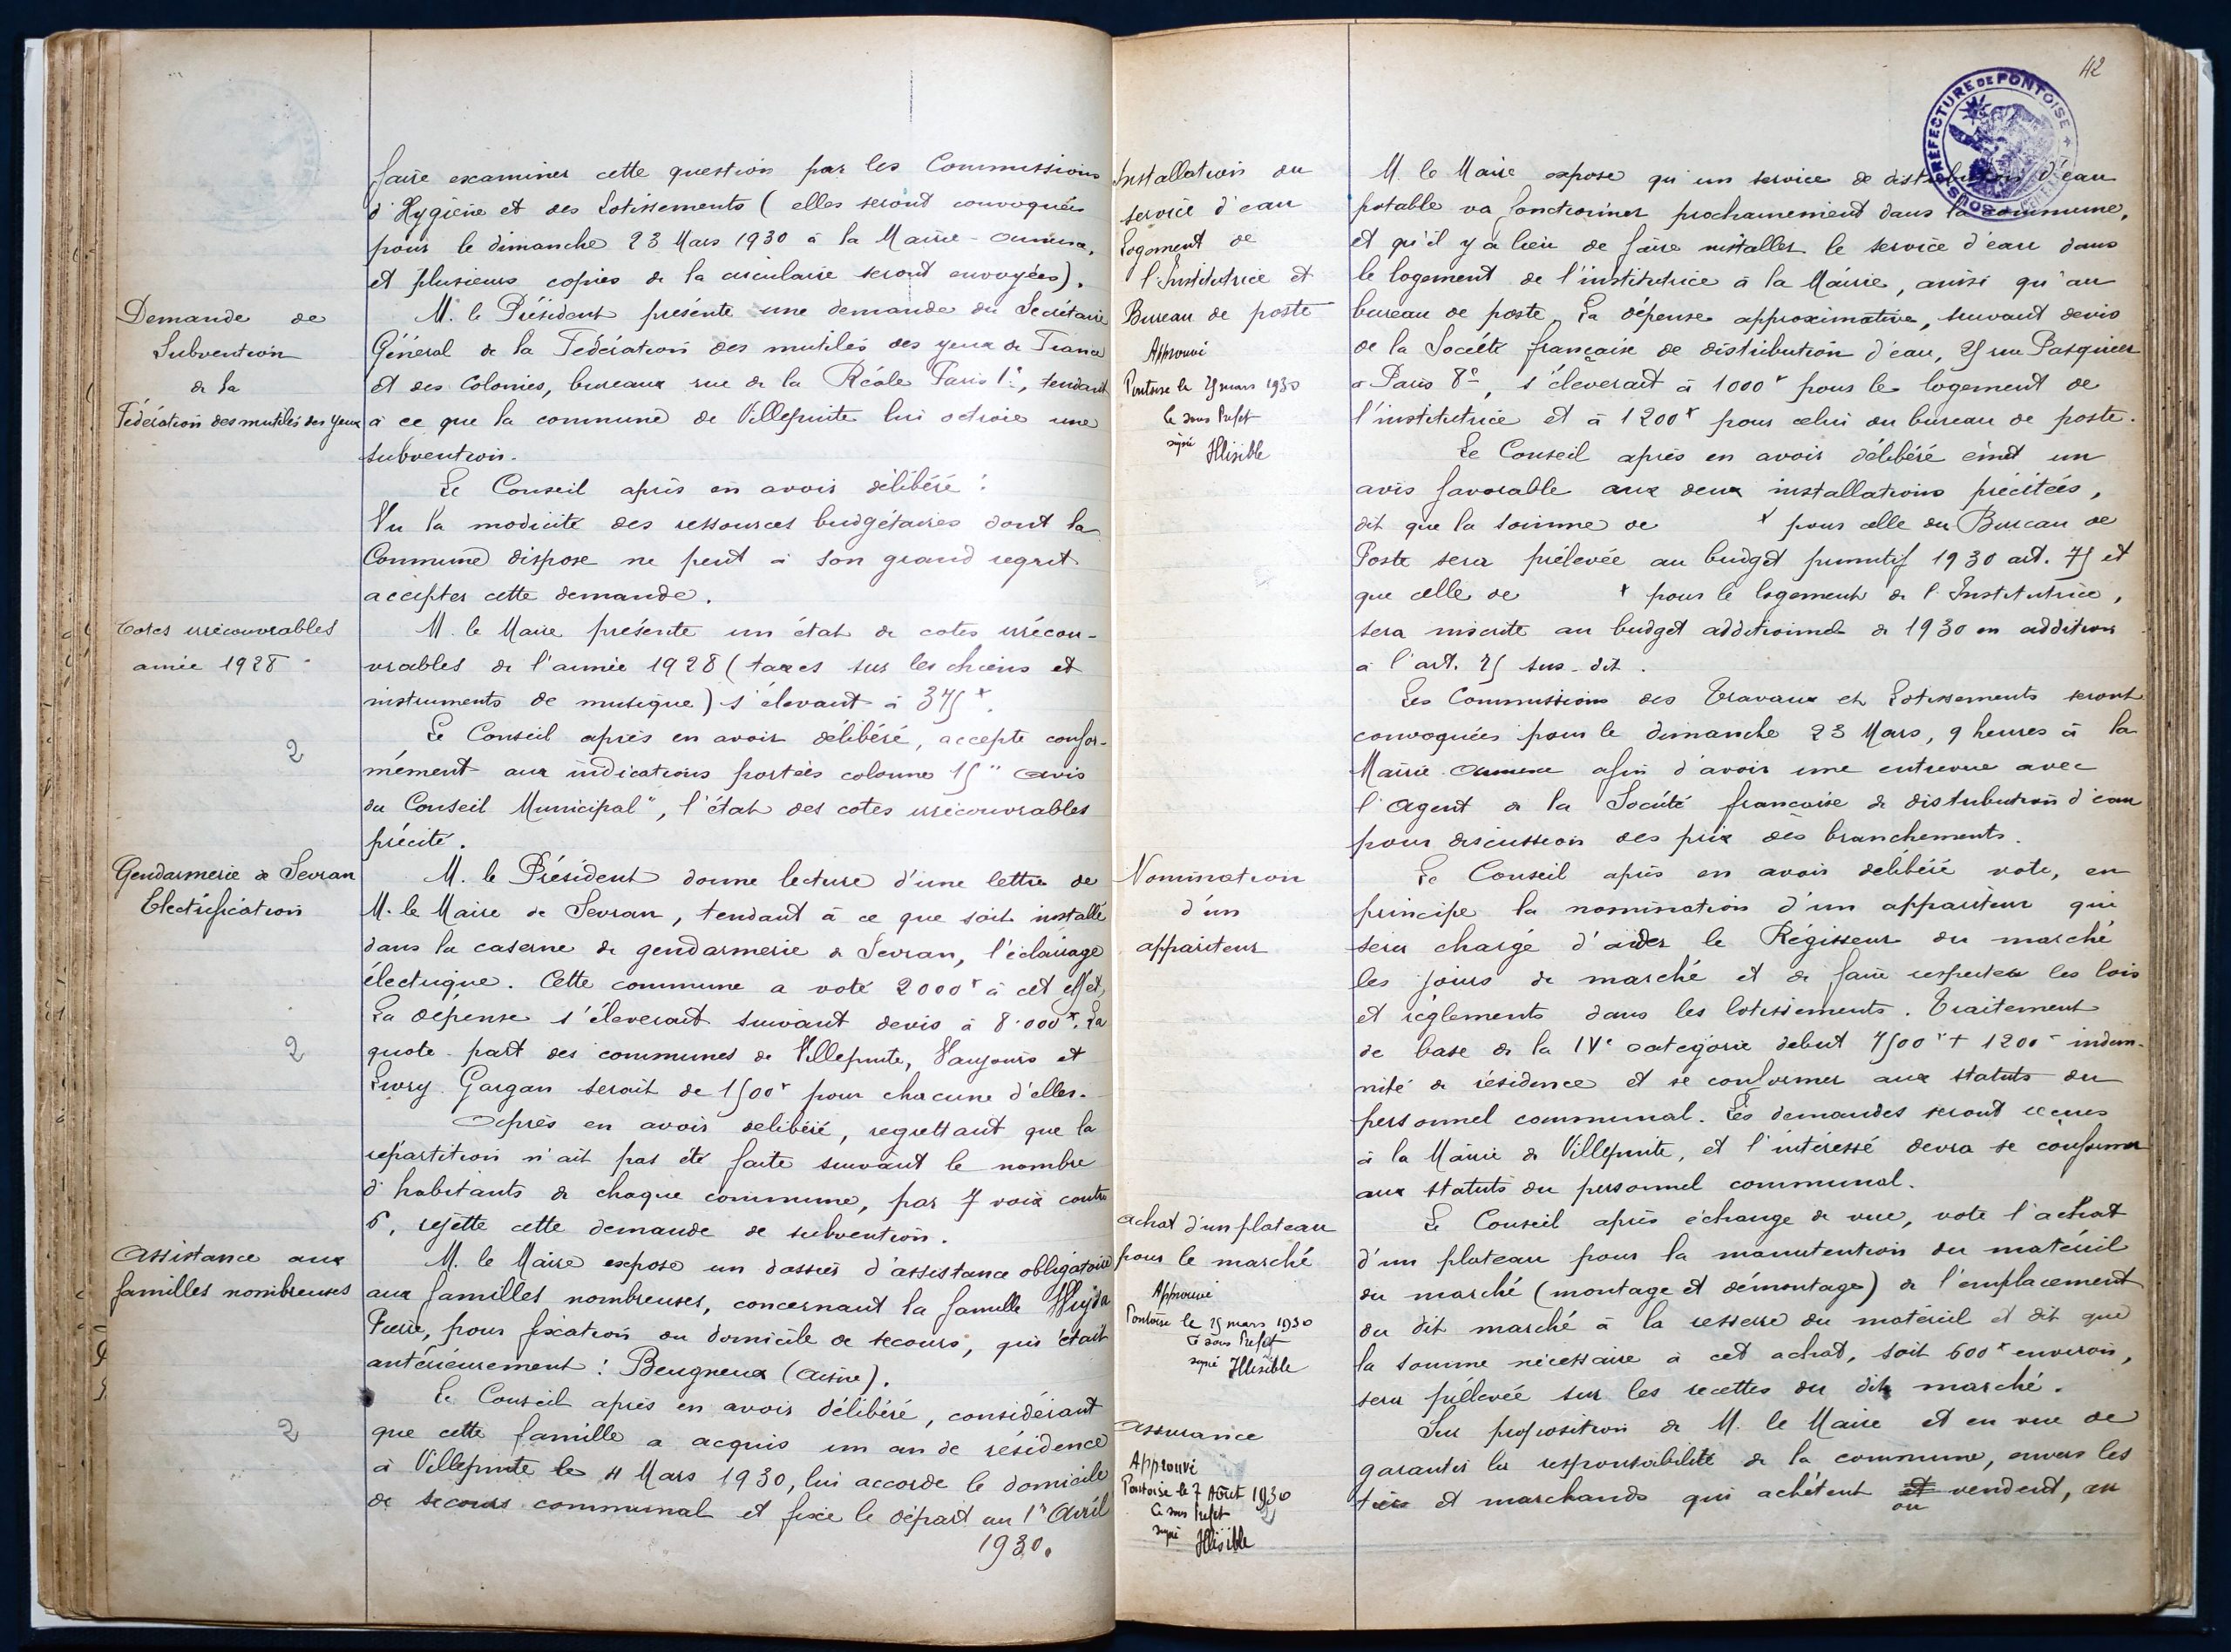 faire examiner cette question par les Commissions
d'Hygiène et des Lotissements (elles seront convoquées
pour le dimanche 23 Mars 1930 à la Mairie-Annexe,
et plusieurs copies de la circulaire seront envoyées).
Demande de
Subvention
de la
Fédération des mutilés des yeux
M. le Président présente une demande du Secrétaire
Général de la Fédération des mutilés des yeux de France
et des Colonies, bureaux rue de la Réole Paris 1er, tendant
à ce que la commune de Villepinte lui octroie une
subvention.
Le Conseil après en avoir délibéré :
Vu la modicité des ressources budgétaires dont la
Commune dispose ne peut à son grand regret
accepter cette demande.
Cotes irrécouvrables
année 1928
2
M. le Maire présente un état de cotes irrécou-
vrables de l'année 1928 (taxes sur les chiens et
instruments de musique) s'élevant à 375 f.
Le Conseil après en avoir délibéré, accepte confor-
mément aux indications portées colonne 15 "avis
du Conseil Municipal", l'état des cotes irrécouvrables
précité.
Gendarmerie de Sevran
Electrification
2
M. le Président donne lecture d'une lettre de
M. le Maire de Sevran, tendant à ce que soit installé
dans la caserne de gendarmerie de Sevran, l'éclairage
électrique. Cette commune a voté 2000 f à cet effet,
La dépense s'éleverait suivant devis à 8.000 f. La
quote-part des communes de Villepinte, Vaujours et
Livry-Gargan serait de 1500 f pour chacune d'elles.
Après en avoir delibéré, regrettant que la
répartition n'ait pas été faite suivant le nombre
d'habitants de chaque commune, par 7 voix contre
6, rejette cette demande de subvention.
Assistance aux
familles nombreuses
2
M. le Maire expose un dossier d'assistance obligatoire
aux familles nombreuses, concernant la famille
Pierre, pour fixation du domicile de secours, qui était
antérieurement : Beugneux (Aisne).
Le Conseil après en avoir délibéré, considérant
que cette famille a acquis un an de résidence
à Villepinte le 4 Mars 1930, lui accorde le domicile
de secours communal et fixe le départ au 1er Avril
1930.
42
SOUS-PRÉFECTURE DE PONTOISE
Installation du
service d'eau
Logement de
l'Institutrice et
Bureau de poste
Approuvé
Pontoise le 25 mars 1930
Le Sous Préfet
signé Illisible
M. le Maire expose qu'un service de distribution d'eau
potable va fonctionner prochainement dans la commune,
et qu'il y a lieu de faire installer le service d'eau dans
le logement de l'institutrice à la Mairie, ainsi qu'au
bureau de poste. La dépense approximative, suivant devis
de la Société française de distribution d'eau, 25 rue Pasquier
à Paris 8e, s'éleverait à 1000 f pour le logement de
l'institutrice et à 1200 f pour celui du bureau de poste.
Le Conseil après en avoir délibéré émet un
avis favorable aux deux installations précitées,
dit que la somme de f pour celle du Bureau de
Poste sera prélevée au budget primitif 1930 art. 75 et
que celle de f pour le logement de l'Institutrice,
sera inscrite au budget additionnel de 1930 en addition
à l'art. 25 sus-dit.
Les Commissions des Travaux et Lotissements seront
convoquées pour le dimanche 23 Mars, 9 heures à la
Mairie-Annexe afin d'avoir une entrevue avec
l'Agent de la Société française de distribution d'eau
pour discussion des prix des branchements.
Nomination
d'un
appariteur
Le Conseil après en avoir délibéré vote, en
principe la nomination d'un appariteur qui
sera chargé d'aider le Régisseur du marché
les jours de marché et de faire respecter les lois
et règlements dans les lotissements. Traitement
de base de la IVe catégorie debut 7500 f + 1200 f indem-
nité de résidence et se conformer aux statuts du
personnel communal. Les demandes seront reçues
à la Mairie de Villepinte, et l'intéressé devra se conformer
aux statuts du personnel communal.
Achat d'un plateau
pour le marché
Approuvé
Pontoise le 25 mars 1930
Le Sous Préfet
signé Illisible
Le Conseil après échange de vue, vote l'achat
d'un plateau pour la manutention du matériel
du marché (montage et démontage) de l'emplacement
du dit marché à la resserre du matériel et dit que
la somme nécessaire à cet achat, soit 600 f environ,
sera prélevée sur les recettes du dit marché.
Assurance
Approuvé
Pontoise le 7 Août 1930
Le Sous Préfet
signé Illisible
Sur proposition de M. le Maire et en vue de
garantir la responsabilité de la commune, envers les
tiers et marchands qui achètent et ou vendent, au